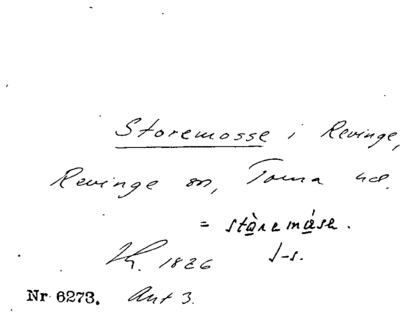 Storemosse i Revinge,
Revinge sn, Torna hd.
= stàremáse.
1826 J-s.
Nr 6273. Ant 3.